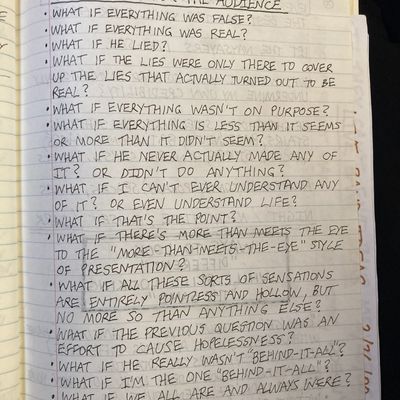 THE AUDIENCE
• WHAT IF EVERYTHING WAS FALSE?
• WHAT IF EVERYTHING WAS REAL?
• WHAT IF HE LIED?
• WHAT IF THE LIES WERE ONLY THERE TO COVER
UP THE LIES THAT ACTUALLY TURNED OUT TO BE
REAL?
• WHAT IF EVERYTHING WASN'T ON PURPOSE?
• WHAT IF EVERYTHING IS LESS THAN IT SEEMS
OR MORE THAN IT DIDN'T SEEM?
• WHAT IF HE NEVER ACTUALLY MADE ANY OF
IT? OR DIDN'T DO ANYTHING?
• WHAT IF I CAN'T EVER UNDERSTAND ANY
OF IT? OR EVEN UNDERSTAND LIFE?
• WHAT IF THAT'S THE POINT?
• WHAT IF THERE'S MORE THAN MEETS THE EYE
TO THE "MORE-THAN-MEETS-THE-EYE" STYLE
OF PRESENTATION?
• WHAT IF ALL THESE SORTS OF SENSATIONS
ARE ENTIRELY POINTLESS AND HOLLOW, BUT
NO MORE SO THAN ANYTHING ELSE?
• WHAT IF THE PREVIOUS QUESTION WAS AN
EFFORT TO CAUSE HOPELESSNESS?
• WHAT IF HE REALLY WASN'T "BEHIND-IT-ALL"?
• WHAT IF I'M THE ONE "BEHIND-IT-ALL"?
• WHAT IF WE ALL ARE AND ALWAYS WERE?